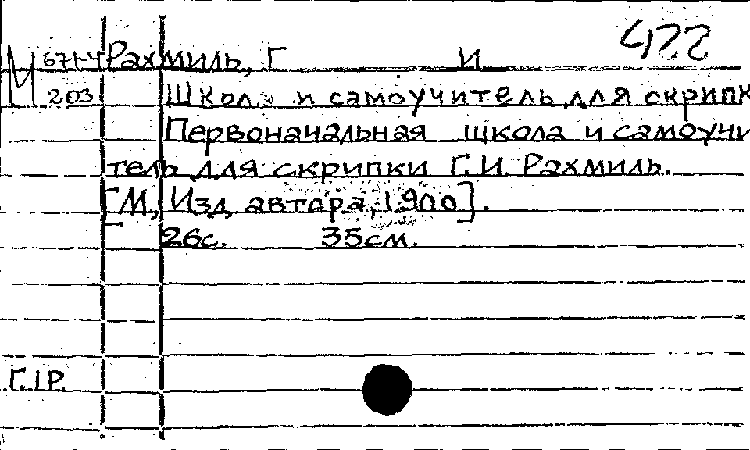 422
М 671-4 Рахмиль, Г И
203 Школа и самоучитель для скрипк
Первоначальная школа и самоучи
тель для скрипки Г. И. Рахмиль.
[М, Изд. автора, 1900].
26с. 35см.
Г.IР.